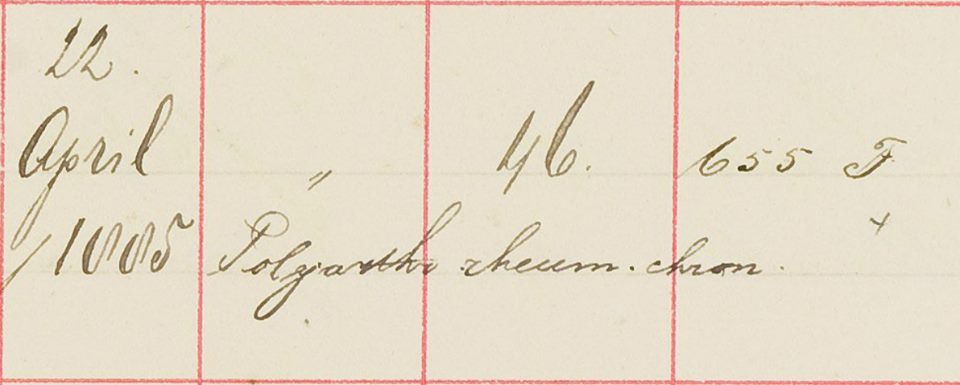 22.
April „ 46. 655 F
/1885 Polyarthr rheum. chron.
+